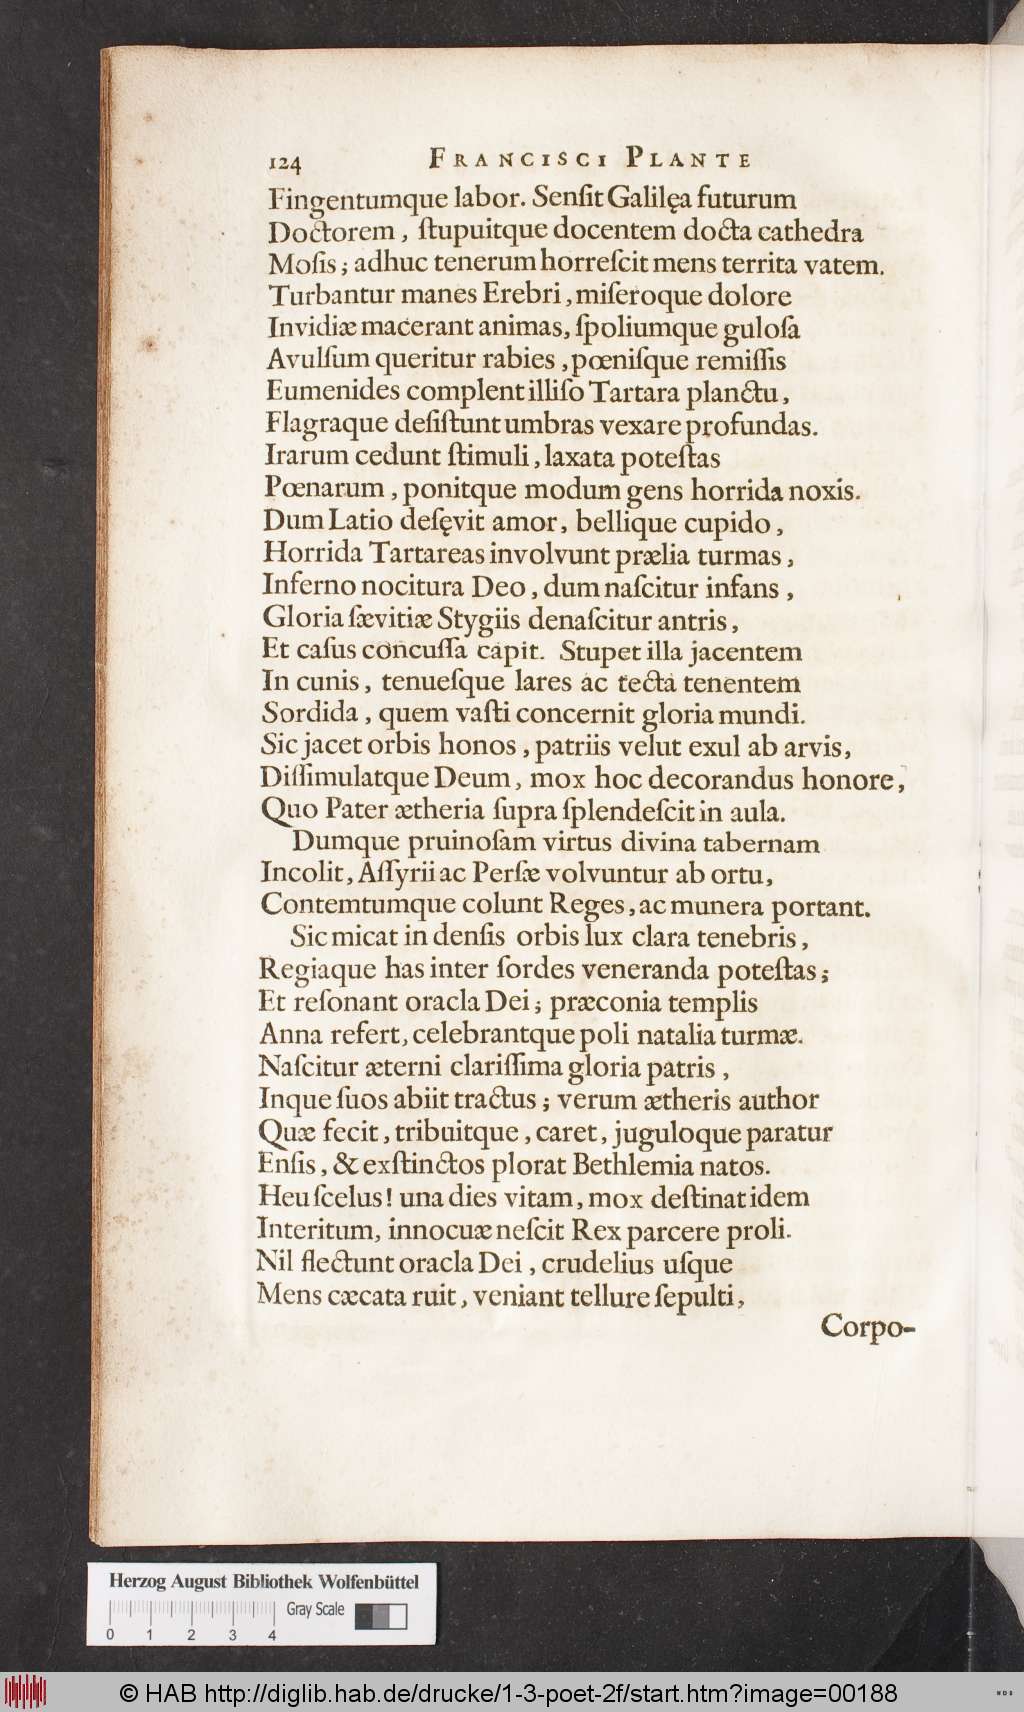 124 FRANCISCI PLANTE
Fingentumque labor. Senſit Galilęa futurum
Doctorem, ſtupuitque docentem docta cathedra
Moſis; adhuc tenerum horreſcit mens territa vatem.
Turbantur manes Erebri, miſeroque dolore
Invidiæ macerant animas, ſpoliumque guloſa
Avulſum queritur rabies, pœniſque remiſſis
Eumenides complent illiſo Tartara planctu,
Flagraque deſiſtunt umbras vexare profundas.
Irarum cedunt ſtimuli, laxata poteſtas
Pœnarum, ponitque modum gens horrida noxis.
Dum Latio deſęvit amor, bellique cupido,
Horrida Tartareas involvunt prælia turmas,
Inferno nocitura Deo, dum naſcitur infans,
Gloria ſævitiæ Stygiis denaſcitur antris,
Et caſus concuſſa capit. Stupet illa jacentem
In cunis, tenueſque lares ac tecta tenentem
Sordida, quem vaſti concernit gloria mundi.
Sic jacet orbis honos, patriis velut exul ab arvis,
Diſſimulatque Deum, mox hoc decorandus honore,
Quo Pater ætheria ſupra ſplendeſcit in aula.
Dumque pruinoſam virtus divina tabernam
Incolit, Aſſyrii ac Perſæ volvuntur ab ortu,
Contemtumque colunt Reges, ac munera portant.
Sic micat in denſis orbis lux clara tenebris,
Regiaque has inter ſordes veneranda poteſtas;
Et reſonant oracla Dei; præconia templis
Anna refert, celebrantque poli natalia turmæ.
Naſcitur æterni clariſſima gloria patris,
Inque ſuos abiit tractus; verum ætheris author
Quæ fecit, tribuitque, caret, juguloque paratur
Enſis, & exſtinctos plorat Bethlemia natos.
Heu ſcelus! una dies vitam, mox deſtinat idem
Interitum, innocuæ neſcit Rex parcere proli.
Nil flectunt oracla Dei, crudelius uſque
Mens cæcata ruit, veniant tellure ſepulti,
Corpo-
Herzog August Bibliothek Wolfenbüttel
Gray Scale
0 1 2 3 4
© HAB http://diglib.hab.de/drucke/1-3-poet-2f/start.htm?image=00188